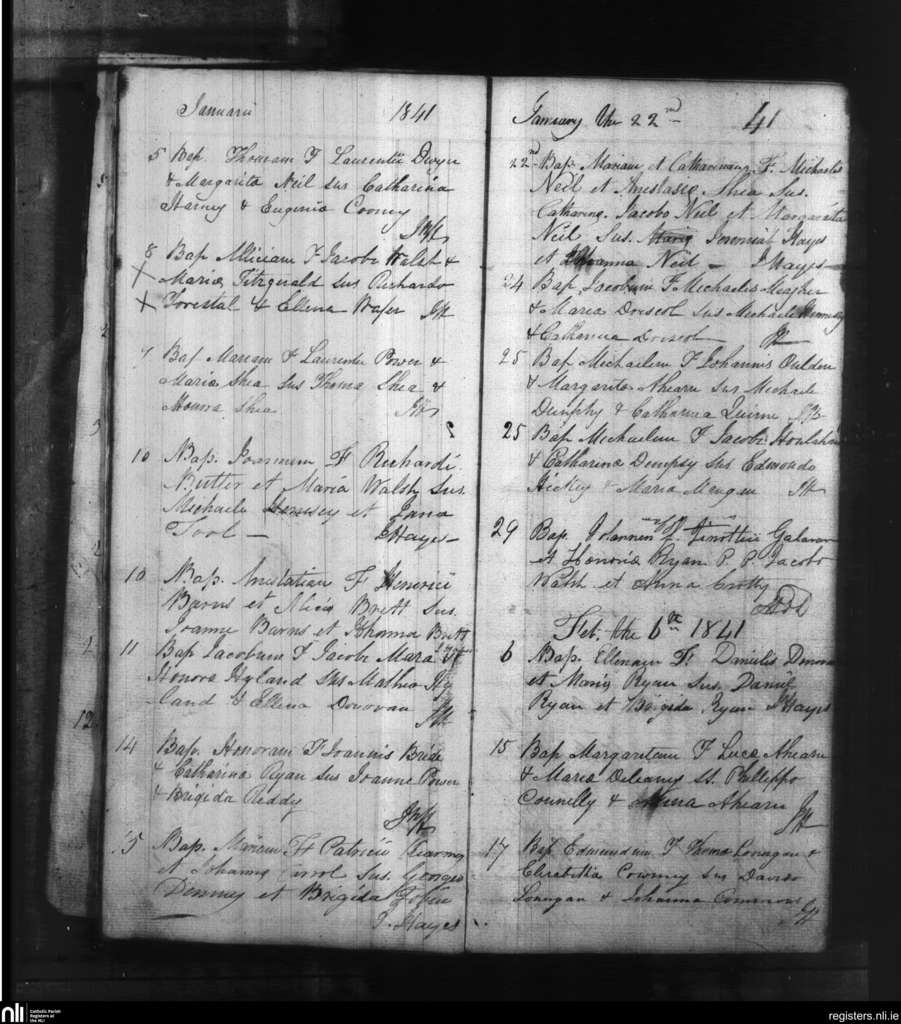 Januarii 1841
5 Bap. Thomam F Laurentii Dwyer
& Margarita Neil Sus Catharina
Harney & Eugenio Cooney
8 Bap Aliciam F Jacobi Walsh &
Maria Fitzgerald Sus Richardo
Forestal & Ellena Wafer JH
9 Bap Mariam F Laurentii Power &
Maria Shea Sus Thoma Shea &
Shea JH
10 Bap. Joannem F Richardi
Butler et Maria Walsh Sus.
Michaele Hennesey et Jana
Tool — J Hayes —
10 Bap. Anastatiam F Henerici
Barns et Alicia Brett Sus.
Joanne Barns et Johanna Brett
11 Bap Jacobum F Jacobi Mara &
Honora Hyland Sus Mathia Hy
land & Ellena Donovan JH
14 Bap. Honoram F Joannis Bride
& Catharina Ryan Sus Joanne Power
& Brigida Reddy
15 Bap. Mariam F Patricii
et Johanna Sus. Georgio
Denney et Brigida Tobin
J. Hayes
January the 22nd 41
22nd Bap. Mariam et Catharinam F. Michaelis
Neil et Anastasia Shea Sus.
Catharina. Jacobo Neil et Margarita
Neil Sus. Maria Jeremiah Hayes
et Johanna Neil — J Hayes —
24 Bap. Jacobum F Michaelis Meagher
& Maria Driscol Sus Michaele Hennesy
& Catharina Driscol JH
25 Bap Michaelem F Johannis Culden
& Margarita Ahearn Sus Michaele
Dunphy & Catharina Quirne JH
25 Bap Michaelem F Jacobi Houlahan
& Catharina Dempsy Sus Edmondo
Hickey & Maria Meagan JH
29 Bap. Johannem F. Timothii Galavan
et Honoria Ryan P. P. Jacobo
Walsh et Anna Crotty
Feb. the 6th 1841
6 Bap. Ellenam F. Danielis
et Maria Ryan Sus. Daniel
Ryan et Brigida Ryan J Hayes
15 Bap Margaretam F Luca Ahearn
& Maria Deleaney St. Phillippo
Connelly & Ahearn JH
17 Bap Edmundum F Thoma Lonagan &
Elizabetha Cowney Sus Davido
Lonagan & Johanna Commons JH
nli
Catholic Parish
Registers at
the NLI
registers.nli.ie